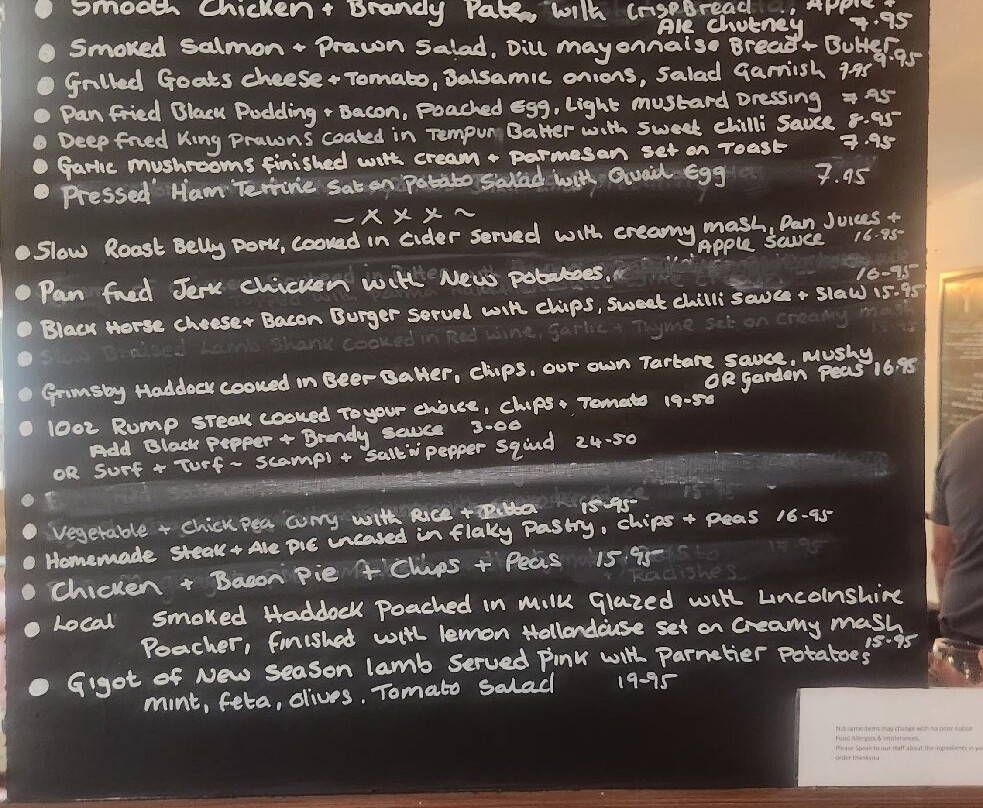 Smooth Chicken + Brandy Pate, with crispBread, Apple +
Ale Chutney 7.95
Smoked Salmon + Prawn Salad, Dill mayonnaise Bread + Butter
9.95
Grilled Goats cheese + Tomato, Balsamic onions, Salad Garnish 7.95
Pan fried Black Pudding + Bacon, Poached Egg, Light Mustard Dressing 7.95
Deep fried King Prawns coated in Tempura Batter with Sweet chilli Sauce 8.95
Garlic mushrooms finished with cream + parmesan set on Toast 7.95
Pressed Ham Terrine Sat on Potato Salad with Quail Egg 7.95
~ x x x ~
Slow Roast Belly Pork, cooked in Cider Served with creamy mash, Pan Juices +
Apple Sauce 16.95
Pan fried Jerk Chicken with New potatoes. 16-95
Black Horse cheese + Bacon Burger served with chips, Sweet chilli Sauce + Slaw 15.95
Slow Braised Lamb Shank cooked in Red Wine, Garlic + Thyme set on Creamy mash
Grimsby Haddock cooked in Beer Batter, chips, our own Tartare Sauce, Mushy
OR Garden Peas 16.95
10oz Rump Steak cooked To your choice, chips + Tomato 19-50
Add Black Pepper + Brandy sauce 3-00
OR Surf + Turf ~ Scampi + Salt 'n' Pepper Squid 24-50
Vegetable + Chick Pea Curry with Rice + Pitta 15-95
Homemade Steak + Ale Pie encased in flaky Pastry, chips + Peas 16-95
Chicken + Bacon Pie + Chips + Peas 15.95
+ Radishes
Local Smoked Haddock Poached in Milk Glazed with Lincolnshire
Poacher, finished with lemon Hollandaise set on Creamy mash
15-95
Gigot of New Season Lamb Served Pink with Parnetier Potatoes
mint, feta, olives. Tomato Salad 19-95
N.B some items may change with no prior notice
Food Allergies & Intolerances.
Please Speak to our staff about the ingredients in
order thankyou